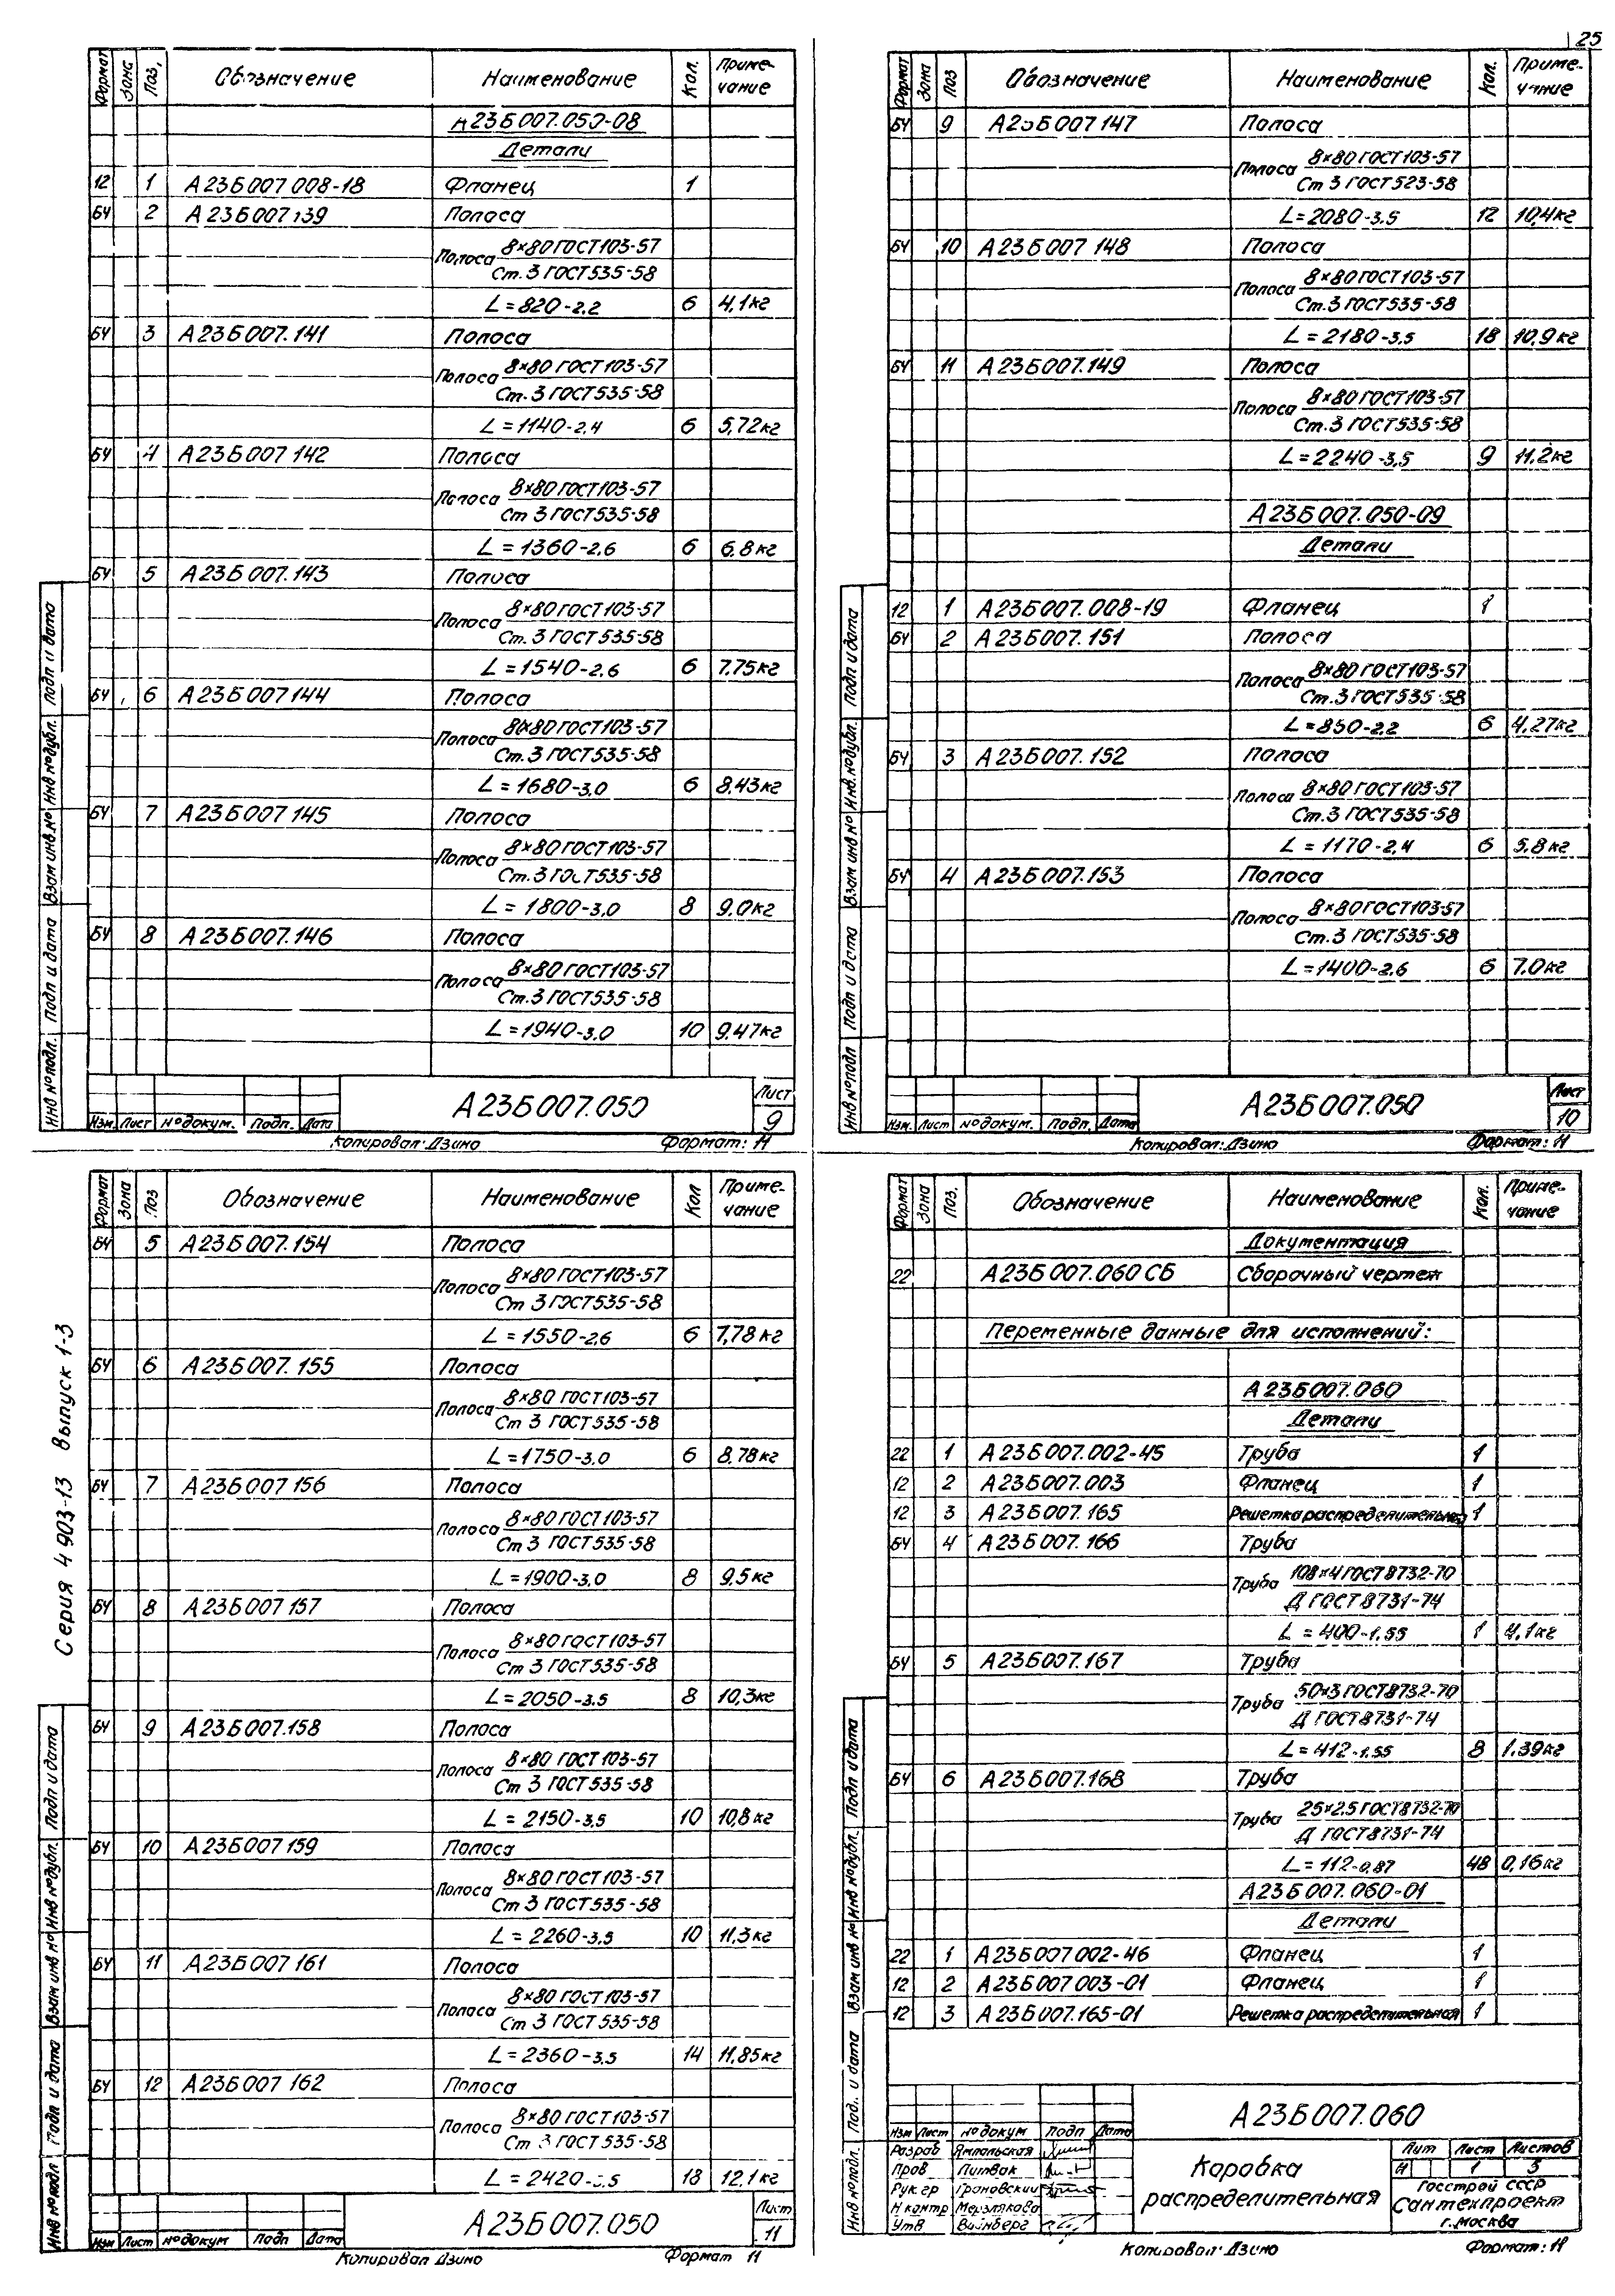 25
Формат Зона Поз. Обозначение Наименование Кол. Приме-
чание
А23Б007.050-08
Детали
12 1 А23Б007.008-18 Фланец 1
БЧ 2 А23Б007.139 Полоса
Полоса 8×80 ГОСТ103-57
Ст.3 ГОСТ535-58
L=820-2,2 6 4,1кг
БЧ 3 А23Б007.141 Полоса
Полоса 8×80 ГОСТ103-57
Ст.3 ГОСТ535-58
L=1140-2,4 6 5,72кг
БЧ 4 А23Б007 142 Полоса
Полоса 8×80 ГОСТ103-57
Ст 3 ГОСТ535-58
L=1360-2,6 6 6,8кг
БЧ 5 А23Б007.143 Полоса
Полоса 8×80 ГОСТ103-57
Ст.3 ГОСТ535-58
L=1540-2,6 6 7.75кг
БЧ 6 А23Б007144 Полоса
Полоса 8×80 ГОСТ103-57
Ст.3 ГОСТ535-58
L=1680-3,0 6 8,43кг
БЧ 7 А23Б007 145 Полоса
Полоса 8×80 ГОСТ103-57
Ст.3 ГОСТ535-58
L=1800-3,0 8 9,0кг
БЧ 8 А23Б007.146 Полоса
Полоса 8×80 ГОСТ103-57
Ст.3 ГОСТ535-58
L=1940-3,0 10 9,47кг
Инв № подл. Подп и дата Взам инв.№ Инв № дубл. Подп и дата
Изм. Лист № докум. Подп. Дата
А23Б007.050
Лист
9
Копировал: Дзино Формат: 11
Формат Зона Поз Обозначение Наименование Кол. Приме-
чание
БЧ 9 А23Б007 147 Полоса
Полоса 8×80 ГОСТ103-57
Ст 3 ГОСТ523-58
L=2080-3,5 12 10,4кг
БЧ 10 А23Б007 148 Полоса
Полоса 8×80 ГОСТ103-57
Ст.3 ГОСТ535-58
L=2180-3,5 18 10,9кг
БЧ 11 А23Б007.149 Полоса
Полоса 8×80 ГОСТ103-57
Ст.3 ГОСТ535-58
L=2240-3,5 9 11,2кг
А23Б007.050-09
Детали
12 1 А23Б007.008-19 Фланец 1
БЧ 2 А23Б007.151 Полоса
Полоса 8×80 ГОСТ103-57
Ст.3 ГОСТ535-58
L=850-2,2 6 4,27кг
БЧ 3 А23Б007.152 Полоса
Полоса 8×80 ГОСТ103-57
Ст.3 ГОСТ535-58
L=1170-2,4 6 5,8кг
БЧ 4 А23Б007.153 Полоса
Полоса 8×80 ГОСТ103-57
Ст.3 ГОСТ535-58
L=1400-2,6 6 7.0кг
Инв № подл Подп и дата Взам инв № Инв. № дубл. Подп и дата
Изм. Лист № докум. Подп. Дата
А23Б007.050
Лист
10
Копировал: Дзино Формат: 11
Серия 4 903-13 Выпуск 1-3
Формат Зона Поз Обозначение Наименование Кол Приме-
чание
БЧ 5 А23Б007.154 Полоса
Полоса 8×80 ГОСТ103-57
Ст 3 ГОСТ535-58
L=1550-2,6 6 7,78кг
БЧ 6 А23Б007.155 Полоса
Полоса 8×80 ГОСТ103-57
Ст 3 ГОСТ535-58
L=1750-3,0 6 8,78кг
БЧ 7 А23Б007 156 Полоса
Полоса 8×80 ГОСТ103-57
Ст 3 ГОСТ535-58
L=1900-3,0 8 9,5кг
БЧ 8 А23Б007 157 Полоса
Полоса 8×80 ГОСТ103-57
Ст 3 ГОСТ535-58
L=2050-3,5 8 10,3кг
БЧ 9 А23Б007.158 Полоса
Полоса 8×80 ГОСТ103-57
Ст 3 ГОСТ535-58
L=2150-3,5 10 10,8кг
БЧ 10 А23Б007159 Полоса
Полоса 8×80 ГОСТ103-57
Ст 3 ГОСТ535-58
L=2260-3,5 10 11,3кг
БЧ 11 А23Б007 161 Полоса
Полоса 8×80 ГОСТ103-57
Ст 3 ГОСТ535-58
L=2360-3,5 14 11,85кг
БЧ 12 А23Б007 162 Полоса
Полоса 8×80 ГОСТ103-57
Ст 3 ГОСТ535-58
L=2420-3,5 18 12,1кг
Инв № подл Подп и дата Взам инв № Инв № дубл. Подп и дата
Изм Лист № докум Подп Дата
А23Б007.050
Лист
11
Копировал Дзино Формат 11
Формат Зона Поз. Обозначение Наименование Кол. Приме-
чание
Документация
22 А23Б007.060 СБ Сборочный чертеж
Переменные данные для исполнений:
А23Б007.060
Детали
22 1 А23Б007.002-45 Труба 1
12 2 А23Б007.003 Фланец 1
12 3 А23Б007.165 Решетка распределительная 1
БЧ 4 А23Б007.166 Труба
Труба 108×4 ГОСТ8732-70
Д ГОСТ8731-74
L=400-1,55 1 4,1кг
БЧ 5 А23Б007.167 Труба
Труба 50×3 ГОСТ8732-70
Д ГОСТ8731-74
L=412-1,55 8 1,39кг
БЧ 6 А23Б007.168 Труба
Труба 25×2,5 ГОСТ8732-70
Д ГОСТ8731-74
L=112-0,87 48 0,16кг
А23Б007.060-01
Детали
22 1 А23Б007 002-46 Фланец 1
12 2 А23Б007 003-01 Фланец 1
12 3 А23Б007.165-01 Решетка распределительная 1
Инв № подл. Под. и дата Взам инв № Инв № дубл. Подп и дата
А23Б007.060
Изм Лист № докум Подп Дата
Разраб Ямпольская
Пров Литвак
Рук.гр Грановский
Н контр Мерзлякова
Утв Вайнберг
Коробка
распределительная
Лит Лист Листов
И 1 5
Госстрой СССР
Сантехпроект
г.Москва
Копировал: Дзино Формат: 11